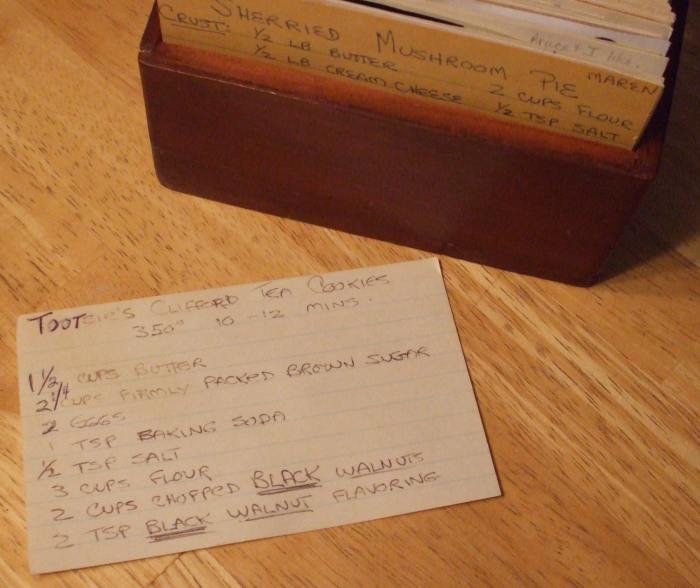 SHERRIED MUSHROOM PIE MAREN
CRUST: 1/2 LB BUTTER 2 CUPS FLOUR
1/2 LB CREAM CHEESE 1/2 TSP SALT
TOOTSIE'S CLIFFORD TEA COOKIES
350° 10-12 MINS.
1 1/2 CUPS BUTTER
2 1/4 CUPS FIRMLY PACKED BROWN SUGAR
2 EGGS
1 TSP BAKING SODA
1/2 TSP SALT
3 CUPS FLOUR
2 CUPS CHOPPED BLACK WALNUTS
2 TSP BLACK WALNUT FLAVORING